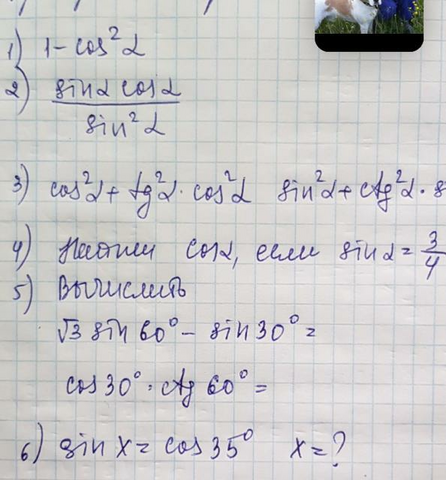 1) 1 - cos²α
2) sinα cosα / sin²α
3) cos²α + tg²α · cos²α sin²α + ctg²α · s
4) Найти cosα, если sinα = 3/4
5) Вычислить
√3 sin 60° - sin 30° =
cos 30° · ctg 60° =
6) sin x = cos 35° x = ?